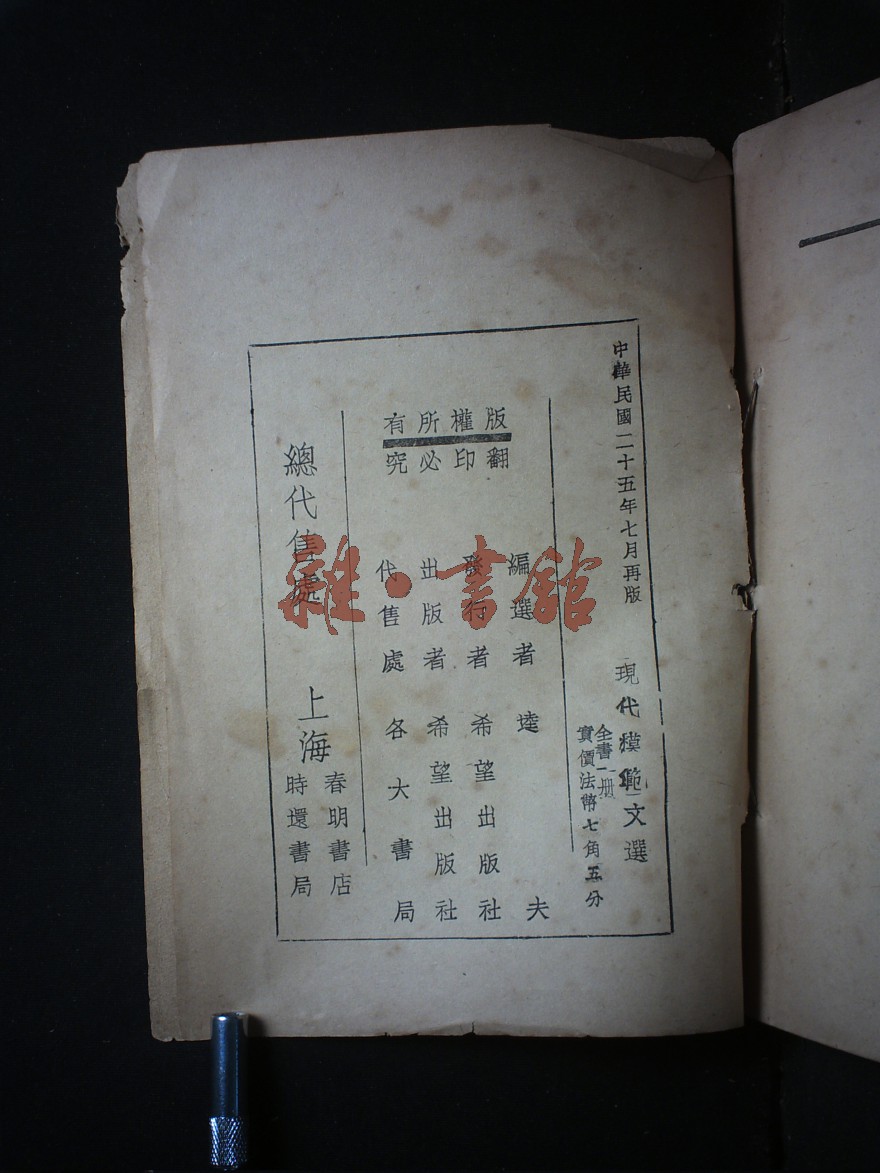 中華民國二十五年七月再版
現代模範文選
全書一册
實價法幣七角五分
版權所有
翻印必究
編選者 達夫
發行者 希望出版社
出版者 希望出版社
代售處 各大書局
總代售處 上海
春明書店
時還書局
雜·書館